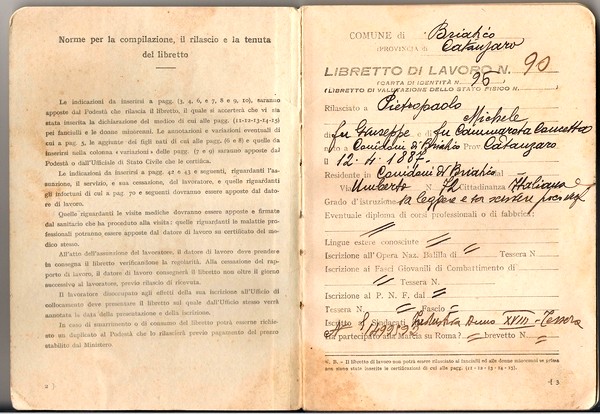 Norme per la compilazione, il rilascio e la tenuta
del libretto
Le indicazioni da inserirsi a pagg. (3, 4, 6, e 7, 8 e 9, 10), saranno
apposte dal Podestà che rilascia il libretto, il quale si accerterà che vi
sia stata inserita la dichiarazione del medico di cui alle pagg. (11-12-13-14-15)
pei fanciulli e le donne minorenni. Le annotazioni e variazioni eventuali di
cui a pag. 5, le aggiunte dei figli nati di cui alle pagg. (6 e 8) e quelle da
inserirsi sulla colonna « variazioni » delle pagg. (7 e 9) saranno apposte dal
Podestà o dall'Ufficiale di Stato Civile che le certifica.
Le indicazioni da inserirsi a pagg. 42 e 43 e seguenti, riguardanti l'as-
sunzione, il servizio, e sua cessazione, del lavoratore, e quelle riguardanti
gli infortuni di cui a pag 70 e seguenti dovranno essere apposte dal dato-
re di lavoro.
Quelle riguardanti le visite mediche dovranno essere apposte e firmate
dal sanitario che ha proceduto alla visita: quelle riguardanti le malattie pro-
fessionali potranno essere apposte dal datore di lavoro su certificato del me-
dico stesso.
All'atto dell'assunzione del lavoratore, il datore di lavoro deve prendere
in consegna il libretto verificandone la regolarità. Alla cessazione del rap-
porto di lavoro, il datore di lavoro consegnerà il libretto non oltre il giorno
successivo al lavoratore, previo rilascio di ricevuta.
Il lavoratore disoccupato agli effetti della sua iscrizione all'Ufficio di
collocamento deve presentare il libretto sul quale dall'Ufficio stesso verrà
annotata la data della presentazione e della iscrizione.
In caso di smarrimento o di consumo del libretto potrà essere richie-
sto un duplicato al Podestà che lo rilascerà previo pagamento del prezzo
stabilito dal Ministero
2
COMUNE di Briatico
(PROVINCIA di Catanzaro
LIBRETTO DI LAVORO N. 90
(CARTA DI IDENTITÀ N. 95
(LIBRETTO DI VALUTAZIONE DELLO STATO FISICO N.
Rilasciato a Pietropaolo Michele
fu Giuseppe, e di fu Cammarota Concetta
nato a Conidoni di Briatico Prov. Catanzaro
il 12-4-1887
Residente in Conidoni di Briatico
Via Umberto N. 72 Cittadinanza Italiana
Grado d'istruzione sa leggere e sa scrivere
Eventuale diploma di corsi professionali o di fabbrica:
Lingue estere conosciute
Iscrizione all'Opera Naz. Balilla di Tessera N
Iscrizione ai Fasci Giovanili di Combattimento di
Tessera N.
Iscrizione al P. N. F. dal
Tessera N. Fascio
Iscritto ai Sindacati Industria Anno XVIII - Tessera
Ha partecipato alla Marcia su Roma? brevetto N.
N. B. - Il libretto di lavoro non potrà essere rilasciato ai fanciulli ed alle donne minorenni se prima
non siano state inserite le certificazioni di cui alle pagg. (11 - 12 - 13 - 14 - 15).
3